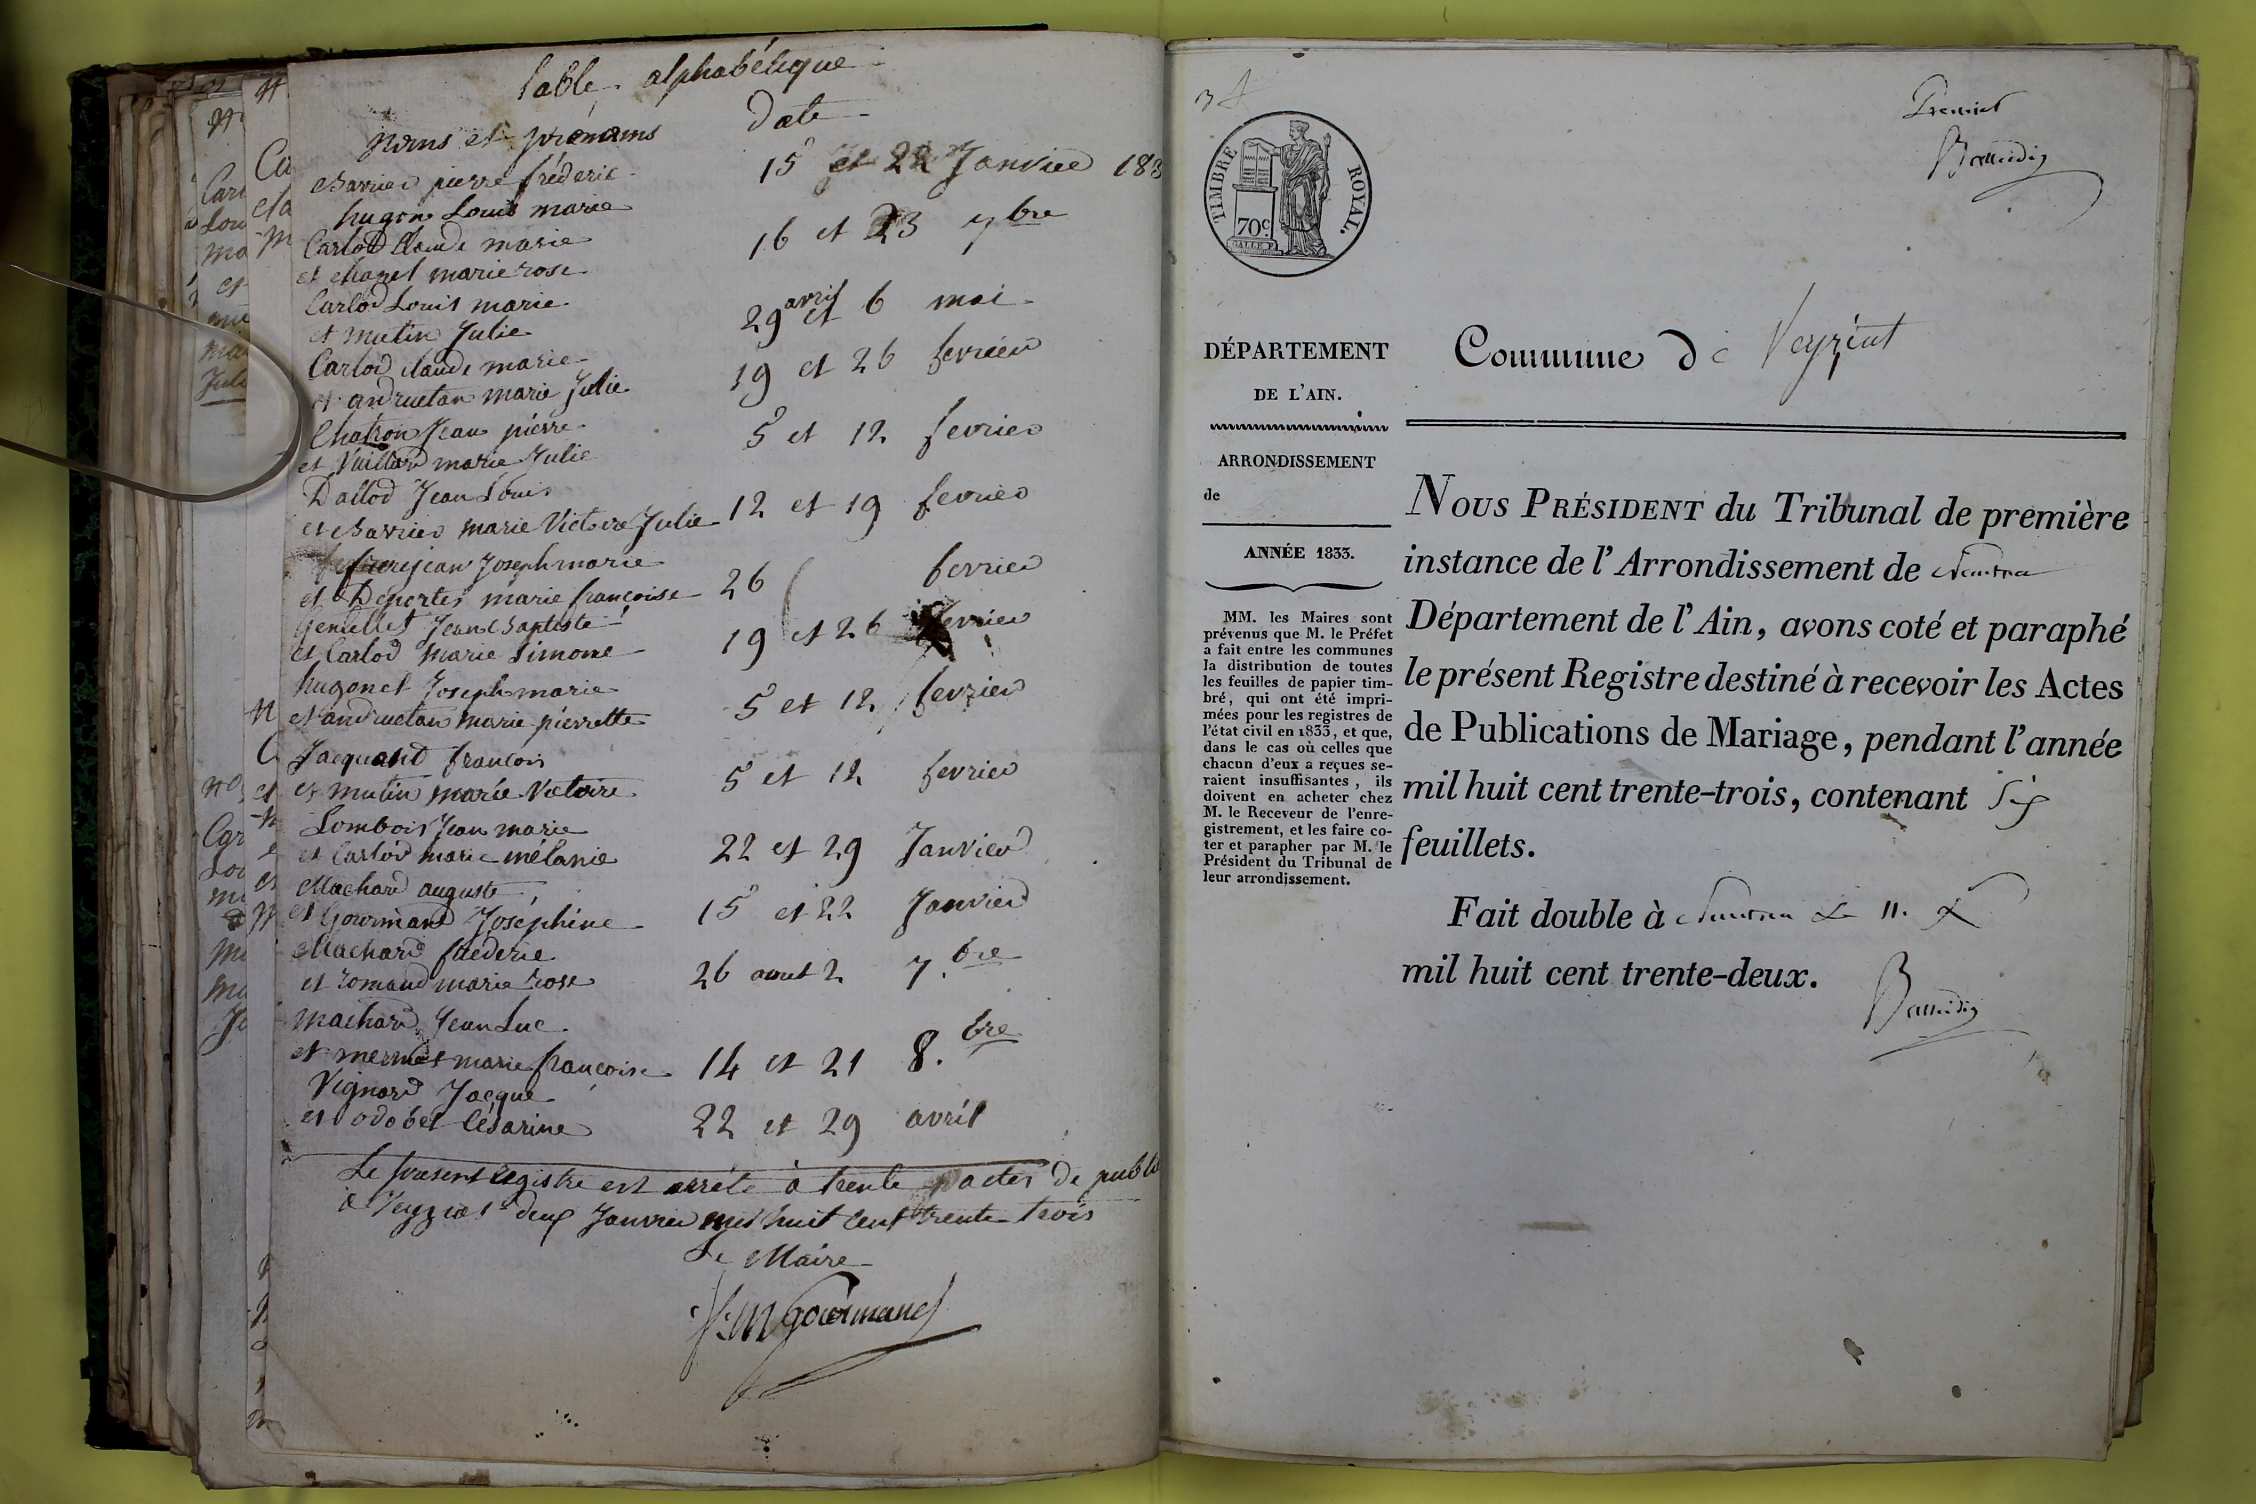 Table alphabétique
Noms et prénoms
Date
Barrier pierre fréderic
hugon Louis marie
15 et 22 Janvier 183
Carlod Claude marie
et Chanel marie rose
16 et 23 7bre
Carlod Louis marie
et mutin Julie
29 avril et 6 mai
Carlod claude marie
et andruetan marie Julie
19 et 26 fevrier
Chatron Jean pierre
et Vuillard marie Julie
5 et 12 fevrier
Dallod Jean Louis
et Barrier marie Victoire Julie
12 et 19 fevrier
frerejean Joseph marie
et Déportes marie françoise
26 fevrier
Genillet Jean Baptiste
et Carlod marie Simone
19 et 26 fevrier
hugonet Joseph marie
et andruetan marie pierrette
5 et 12 fevrier
Jacquand francois
et mutin marie Victoire
5 et 12 fevrier
Lombois Jean marie
et Carlod marie mélanie
22 et 29 Janvier
Machard auguste
et Gourmand Joséphine
15 et 22 Janvier
Machard frederic
et romand marie rose
26 aout 2 7.bre
Machard Jean Luc
et mermet marie françoise
14 et 21 8.bre
Vignard Jacque
et odobet Césarine
22 et 29 avril
Le present registre est arrété à trente actes de publi
à Veyziat deux Janvier mil huit cent trente trois
Le Maire
Gourmand
34
Premier
TIMBRE ROYAL.
70c.
DÉPARTEMENT
DE L'AIN.
ARRONDISSEMENT
de
ANNÉE 1833.
MM. les Maires sont
prévenus que M. le Préfet
a fait entre les communes
la distribution de toutes
les feuilles de papier tim-
bré, qui ont été impri-
mées pour les registres de
l'état civil en 1833, et que,
dans le cas où celles que
chacun d'eux a reçues se-
raient insuffisantes, ils
doivent en acheter chez
M. le Receveur de l'enre-
gistrement, et les faire co-
ter et parapher par M. le
Président du Tribunal de
leur arrondissement.
Commune de Veyziat
NOUS PRÉSIDENT du Tribunal de première
instance de l'Arrondissement de Nantua
Département de l'Ain, avons coté et paraphé
le présent Registre destiné à recevoir les Actes
de Publications de Mariage, pendant l'année
mil huit cent trente-trois, contenant Six
feuillets.
Fait double à Nantua Le 11. X
mil huit cent trente-deux.